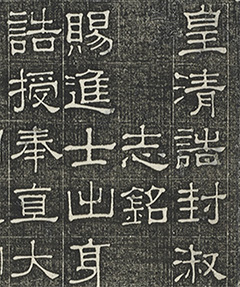 皇清誥封淑
志銘
賜進士出身
誥授奉直大